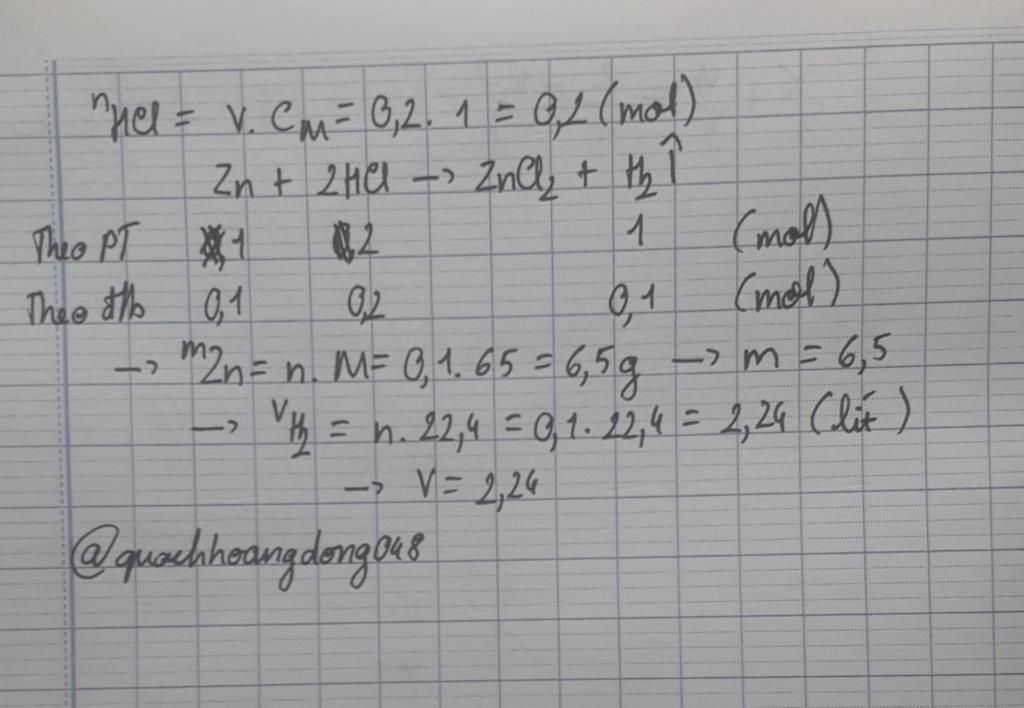 nHCl = V. CM = 0,2. 1 = 0,2 (mol)
Zn + 2HCl → ZnCl2 + H2↑
Theo PT 1 2 1 (mol)
Theo đ/b 0,1 0,2 0,1 (mol)
→ mZn = n. M = 0,1. 65 = 6,5g → m = 6,5
→ VH2 = n. 22,4 = 0,1. 22,4 = 2,24 (lít)
→ V = 2,24
@quachhoangdong048